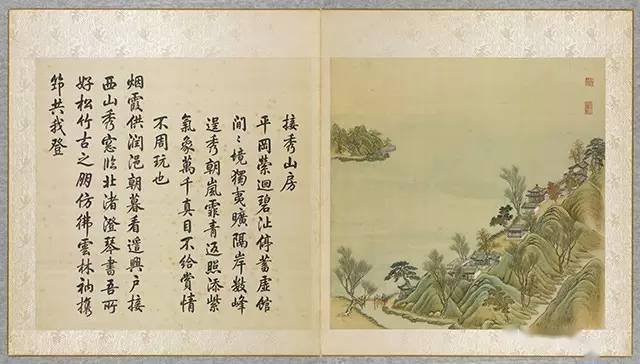 接秀山房
平岡縈迴碧沚停蓄虛館
間〻境獨夷曠隔岸數峰
逞秀朝嵐霏青返照添紫
氣象萬千真目不給賞情
不周玩也
烟霞供潤浥朝暮看遙興戶接
西山秀窓臨北渚澄琴書吾所
好松竹古之朋仿彿雲林衲攜
筇共我登